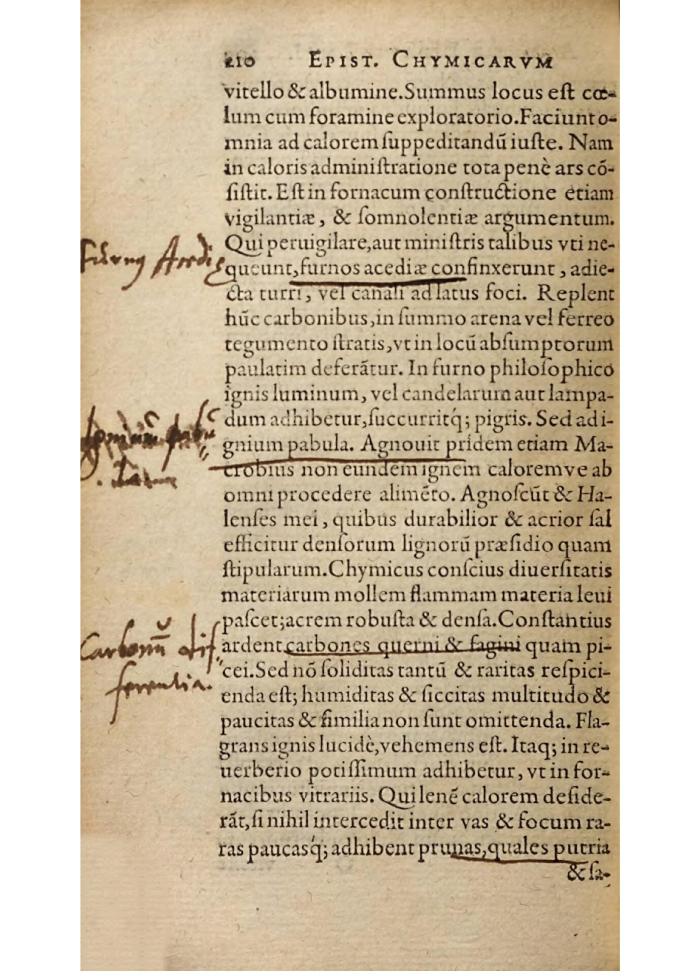 210 EPIST. CHYMICARVM
vitello & albumine. Summus locus eſt cœ-
lum cum foramine exploratorio. Faciunt o-
mnia ad calorem ſuppeditandū iuſte. Nam
in caloris adminiſtratione tota penè ars cō-
ſiſtit. Eſt in fornacum conſtructione etiam
vigilantiæ, & ſomnolentiæ argumentum.
Qui peruigilare, aut miniſtris talibus vti ne-
queunt, furnos acediæ confinxerunt, adie-
cta turri, vel canali ad latus foci. Replent
hūc carbonibus, in ſummo arena vel ferreo
tegumento ſtratis, vt in locū abſumptorum
paulatim deferātur. In furno philoſophico
ignis luminum, vel candelarum aut lampa-
dum adhibetur, ſuccurritq́; pigris. Sed ad i-
gnium pabula. Agnouit pridem etiam Ma-
crobius non eundem ignem caloremve ab
omni procedere alimēto. Agnoſcūt & Ha-
lenſes mei, quibus durabilior & acrior ſal
efficitur denſorum lignorū præſidio quam
ſtipularum. Chymicus conſcius diuerſitatis
materiarum mollem flammam materia leui
paſcet; acrem robuſta & denſa. Conſtantius
ardent carbones querni & fagini quam pi-
cei. Sed nō ſoliditas tantū & raritas reſpici-
enda eſt; humiditas & ſiccitas multitudo &
paucitas & ſimilia non ſunt omittenda. Fla-
grans ignis lucidè, vehemens eſt. Itaq; in re-
uerberio potiſſimum adhibetur, vt in for-
nacibus vitrariis. Qui lenē calorem deſide-
rāt, ſi nihil intercedit inter vas & focum ra-
ras paucasq́; adhibent prunas, quales putria
& ſa-
Carbonū dif
ferentia.